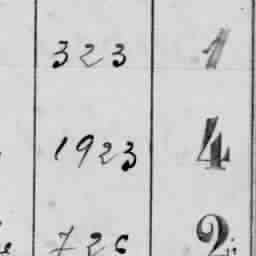 323 1
1923 4
726 2